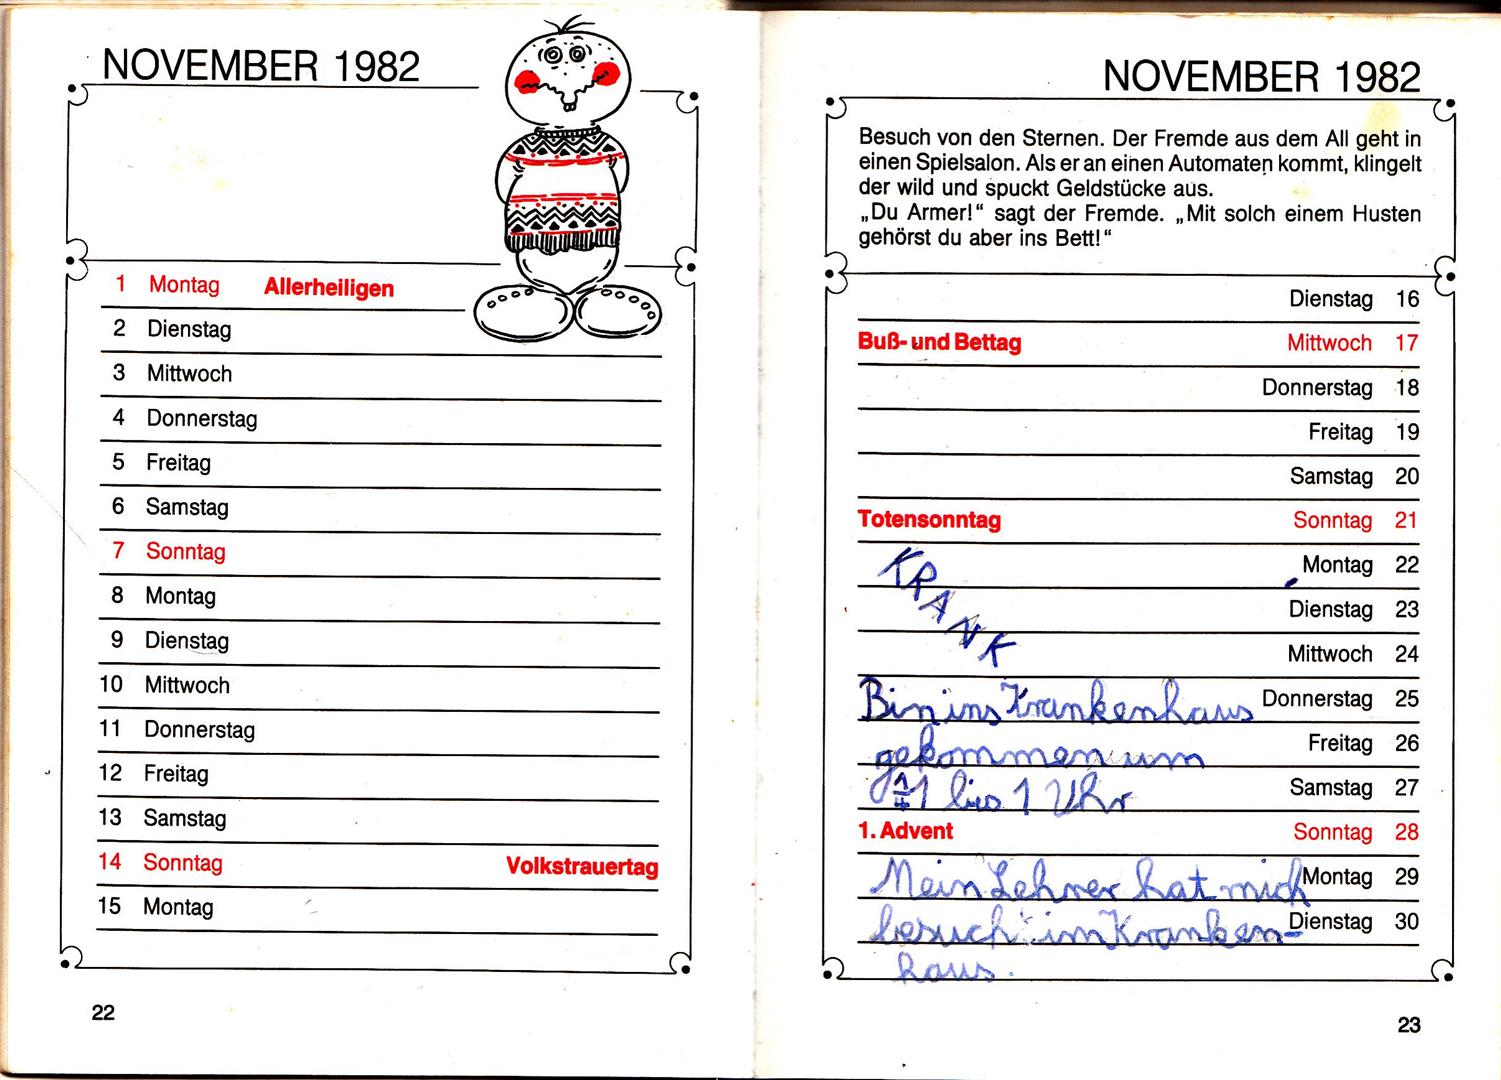 NOVEMBER 1982
1 Montag Allerheiligen
2 Dienstag
3 Mittwoch
4 Donnerstag
5 Freitag
6 Samstag
7 Sonntag
8 Montag
9 Dienstag
10 Mittwoch
11 Donnerstag
12 Freitag
13 Samstag
14 Sonntag Volkstrauertag
15 Montag
22
NOVEMBER 1982
Besuch von den Sternen. Der Fremde aus dem All geht in
einen Spielsalon. Als er an einen Automaten kommt, klingelt
der wild und spuckt Geldstücke aus.
„Du Armer!“ sagt der Fremde. „Mit solch einem Husten
gehörst du aber ins Bett!“
Dienstag 16
Buß- und Bettag Mittwoch 17
Donnerstag 18
Freitag 19
Samstag 20
Totensonntag Sonntag 21
Montag 22
Dienstag 23
Mittwoch 24
KRANK
Bin ins Krankenhaus Donnerstag 25
gekommen um Freitag 26
1 bis 1 Uhr Samstag 27
1. Advent Sonntag 28
Mein Lehrer hat mich Montag 29
besuch im Kranken- Dienstag 30
haus.
23